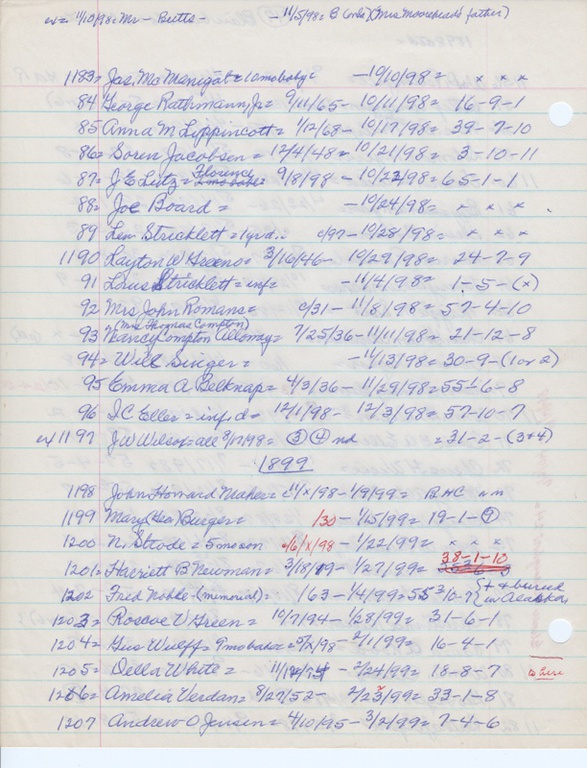 ex= 11/10/98= Mr - Butts - - 11/5/98= B (only) (Mrs. Moorehead's father)
1183= Jas. Mc Manigal = 10mo baby = - 10/10/98 = x x x
84= George Rathmann, Jr = 9/11/65 - 10/11/98 = 16-9-1
85= Anna M Lippincott = 1/12/68 - 10/17/98 = 39-7-10
86= Soren Jacobsen = 12/4/48 = 10/21/98 = 3-10-11
87= J E Lutz = Florence 9/8/98 - 10/22/98 = 65-1-1
88= Joe Board = - 10/24/98 = x x x
89 Len Stricklett = 1 yr d.. c/97 - 10/28/98 = x x x
1190 Layton W Greeno = 3/16/46 - 10/29/98 = 24-7-9
91 Louis Stricklett = inf = - 11/4/98 = 1-5-(x)
92 Mrs John Romans = c/31 - 11/8/98 = 57-4-10
(Mrs Thomas Compton)
93 Nancy Compton Alloway = 7/25/36 - 11/11/98 = 21-12-8
94= Will Singer = - 11/13/98 = 30-9-(1 or 2)
95 Emma A Belknap = 4/3/36 - 11/29/98 = 55½-6-8
96 I C Eller = inf. d = 12/1/98 - 12/3/98 = 57-10-7
ex 1197 J W Wilson = all 9/17/98 = ③ ④ nd = 31-2-(3+4)
1899
1198 John Howard Maher = 11/x/98 - 1/9/99 = B HC n m
1199 Mary (Geo) Burger = /30 - 1/15/99 = 19-1-⑨
1200 N. Strode = 5 mo son 6/x/98 - 1/22/99 = x x x
1201= Harriett B Newman = 3/18/19 - 1/27/99 = 38-1-10
1202 Fred Noble - (memorial) = 163 - 1/4/99 = 55 ³ 10-7 { + + buried in Alaska
1203= Roscoe V Green = 10/7/94 - 1/28/99 = 31-6-1
1204= Gus Wulff = 9 mo baby = 5/2/98 - 2/1/99 = 16-4-1
1205= Della White = 11/12/74 - 2/24/99 = 18-8-7 to here
1206= Amelia Verdan = 8/27/52 - 2/23/99 = 33-1-8
1207 Andrew O Jensen = 4/10/95 - 3/2/99 = 7-4-6